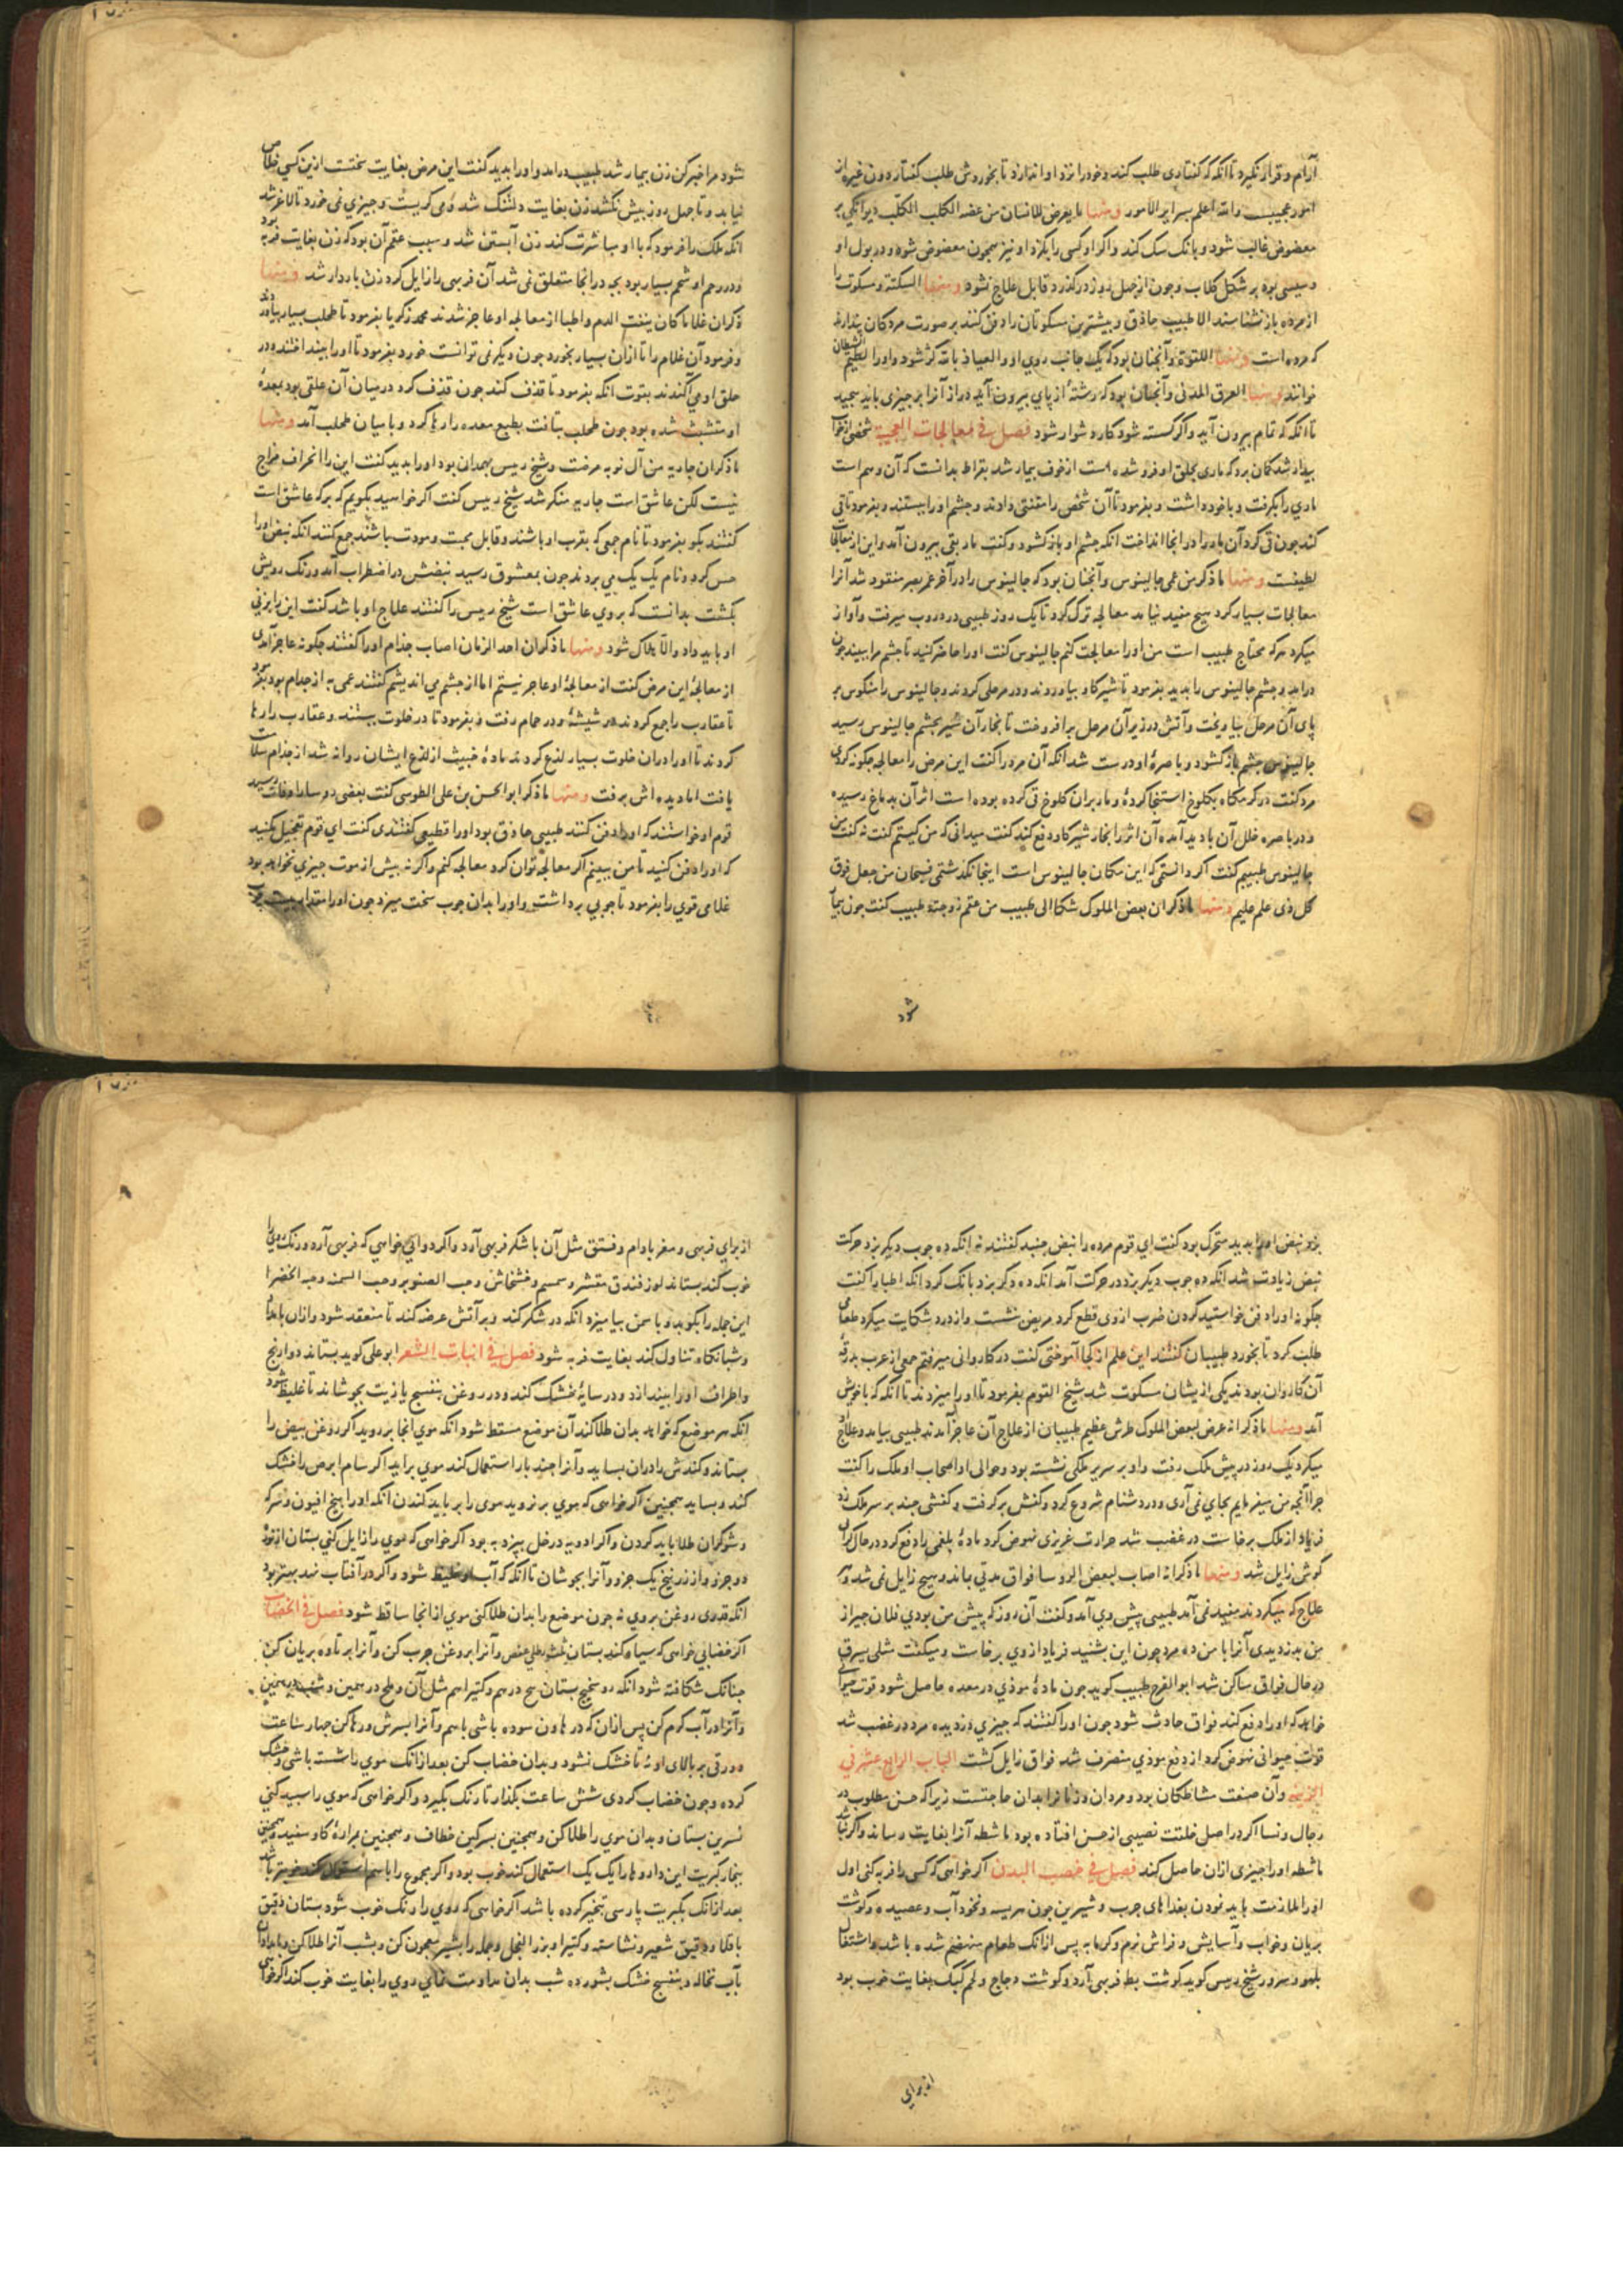 آرام و قرار نکیرد تا آنکه که کفتاری طلب کند و خود را نزد او اندازد تا بخوردش طلب کفتار دون غیره از
امور عجیبست والله اعلم بسرایر الامور ومنها ما یعرض للانسان من عضه الکلب الکلب دیوانکی بر
معضوض غالب شود و بانک سک کند و اکر او کسی را بکزد او نیز همچون معضوض شود و در بول او
بر شکل کلاب و چون از چهل روز درکذرد قابل علاج نشود ومنها السکتة و مسکوت را
از مرده باز نشناسند الا طبیب حاذق و بیشترین مسکوتان را دفن کنند بر صورت مردکان پندارند
که مرده است ومنها اللقوة و آنچنان بود که یک جانب روی او والعیاذ بالله کژ شود و او را لطیم الشیطان
خوانند ومنها العرق المدنی و آنچنان بود که رشتهٔ از پای بیرون آید دراز آنرا بر چیزی باید پیچید
تا آنکه که تمام بیرون آید و اکر کسسته شود کار دشوار شود فصل فی المعالجات العجیبة شخصی از خواب
بیدار شد کمان برد که ماری بحلق او فرو شده است از خوف بیمار شد بقراط بدانست که آن وهم است
ماری را بکرفت و با خود داشت و بفرمود تا آن شخص را مقیّی دادند و چشم او را ببستند و بفرمود تا قی
کند چون قی کرد آن مار را در انجا انداخت آنکه چشم او باز کشود و کفت مار بقی بیرون آمد و این از معالجات
لطیفست ومنها ما ذکر من عمی جالینوس و آنچنان بود که جالینوس را در آخر عمر بصر منقود شد آنرا
معالجات بسیار کرد هیچ مفید نیامد معالجه ترک کرد تا یک روز طبیبی در دروب میرفت و آواز
میکرد هرکه محتاج طبیب است من او را معالجت کنم جالینوس کفت او را حاضر کنید تا چشم مرا ببیند چون
درآمد و چشم جالینوس را بدید بفرمود تا شیر کاو بیاوردند و در مرجلی کردند و جالینوس را منکوس بر
پای آن مرجل بیاویخت و آتش در زیر آن مرجل برافروخت تا بخار آن شیر بچشم جالینوس رسید
جالینوس چشم باز کشود و باصرهٔ او درست شد آنکه آن مرد را کفت این مرض را معالجه چکونه کردی
مرد کفت در کرمکاه بکلوخ استنجا کردهٔ و مار بران کلوخ قی کرده بوده است اثر آن بدماغ رسیده
و در باصره خلل آن بادید آمده آن اثر را بخار شیر کاو دفع کند کفت میدانی که من کیستم کفت نه کفت من
جالینوس طبیبم کفت اکر دانستمی که این مکان جالینوس است اینجا نکذشتمی فسبحان من جعل فوق
کل ذی علم علیم ومنها ما ذکر ان بعض الملوک شکا الی طبیب من عقم زوجته طبیب کفت چون بیمار
شود
شود مرا خبر کن زن بیمار شد طبیب درامد و او را بدید کفت این مرض بغایت سختست ازین کسی خلاص
نیابد و تا چهل روز بیش نکشد زن بغایت دلتنک شد و می کریست و چیزی نمی خورد تا لاغر شد
آنکه ملک را فرمود که با او مباشرت کند زن آبستن شد و سبب عقم آن بود که زن بغایت فربه بود
و در رحم او شحم بسیار بود بچه در انجا متعلق نمی شد آن فربهی را زایل کرد زن باردار شد ومنها
ذکر ان غلاما کان ینفث الدم و اطبا از معالجه او عاجز شدند محمد زکریا بفرمود تا طحلب بسیار بیاوردند
و فرمود آن غلام را تا ازان بسیار بخورد چون دیکر نمی توانست خورد بفرمود تا او را بینداختند و در
حلق او می آکندند بقوت آنکه بفرمود تا قذف کند چون قذف کرد در میان آن علقی بود بمعدهٔ
او متشبث شده بود چون طحلب بیافت بطبع معده را رها کرد و با میان طحلب آمد ومنها
ما ذکر ان جاریه من آل نوبه مرضت و شیخ رییس بهمدان بود او را بدید کفت این را انحراف مزاج
نیست لکن عاشق است جاریه منکر شد شیخ رییس کفت اکر خواهید بکویم که بر که عاشق است
کفتند بکو بفرمود تا نام جمعی که بقرب او باشند و قابل محبت و مودت باشند جمع کنند آنکه نبض او را
حس کرد و نام یک یک می بردند چون بمعشوق رسید نبضش در اضطراب آمد و رنک رویش
بکشت بدانست که بروی عاشق است شیخ رییس را کفتند علاج او باشد کفت این را بزنی
او باید داد والا هلاک شود ومنها ما ذکر ان احد الزمان اصاب جذام او را کفتند چکونه عاجز آمدی
از معالجهٔ این مرض کفت از معالجهٔ او عاجز نیستم اما از چشم می اندیشم کفتند عمی به از جذام بود بفرمود
تا عقارب را جمع کردند در شیشهٔ و در حمام رفت و بفرمود تا در خلوت ببستند و عقارب را رها
کردند تا او را دران خلوت بسیار لدغ کردند مادهٔ خبیث از لدغ ایشان روانه شد از جذام سلامت
یافت اما دیده اش برفت ومنها ما ذکر ابو الحسن بن علی الطوسی کفت بعضی روسا را وفات رسید
قوم او خواستند که او را دفن کنند طبیبی حاذق بود او را قطیعی کفتندی کفت ای قوم تعجیل مکنید
که او را دفن کنید تا من ببینم اکر معالجه توان کرد معالجه کنم و اکر نه بیش از موت چیزی نخواهد بود
غلامی قوی را بفرمود تا چوبی برداشت و او را بدان چوب سخت میزد چون او را مقدار بیست چوب
بزد نبض او را بدید متحرک بود کفت ای قوم مرده را نبض جنبد کفتند نه آنکه ده چوب دیکر بزد حرکت
نبض زیادت شد آنکه ده چوب دیکر بزد در حرکت آمد آنکه ده دکر بزد بانک کرد آنکه اطبا را کفت
چکونه او را دفن خواستید کردن ضرب از وی قطع کرد مریض نشست و از درد شکایت میکرد طعامی
طلب کرد تا بخورد طبیبان کفتند این علم از کجا آموختی کفت در کاروانی میرفتم جمعی از عرب بدرقهٔ
آن کاروان بودند یکی ازیشان مسکوت شد شیخ القوم بفرمود تا او را میزدند تا آنکه که با خویش
آمد ومنها ما ذکر انه عرض لبعض الملوک طرش عظیم طبیبان از علاج آن عاجز آمدند طبیبی بیامد و علاج
میکرد یک روز در پیش ملک رفت و او بر سریر ملکی نشسته بود و حوالی او اصحاب او ملک را کفت
چرا آنچه من میفرمایم بجای نمی آری و در دشنام شروع کرد و کفش برکرفت و کفشی چند بر سر ملک زد
فریاد از ملک برخاست در غضب شد حرارت غریزی نهوض کرد مادهٔ بلغمی را دفع کرد در حال کران
کوشی زایل شد ومنها ما ذکر انه اصاب لبعض الروسا فواق مدتی بماند و هیچ زایل نمی شد و هر
علاج که میکردند مفید نمی آمد طبیبی پیش وی آمد و کفت آن روز که پیش من بودی فلان چیز از
من بدزدیدی آنرا با من ده مرد چون این بشنید فریاد از وی برخاست و میکفت مثلی یسرق
در حال فواق ساکن شد ابو الفرج طبیب کوید چون مادهٔ موذی در معده حاصل شود قوت حیوانی
خواهد که او را دفع کند فواق حادث شود چون او را کفتند که چیزی دزدیده مرد در غضب شد
قوت حیوانی نهوض کرد از دفع موذی منصرف شد فواق زایل کشت الباب الرابع عشر فی
الزینة و آن صنعت مشاطکان بود و مردان و زنانرا بدان حاجتست زیرا که حسن مطلوب در
رجال و نسا اکر در اصل خلقت نصیبی از حسن افتاده بود ماشطه آنرا بغایت رساند و اکر نباشد
ماشطه او را چیزی ازان حاصل کند فصل فی خصب البدن اکر خواهی که کسی را فربه کنی اول
او را ملازمت باید نمودن بغذاهای چرب و شیرین چون هریسه و نخود آب و عصیده و کوشت
بریان و خواب و آسایش و فراش نرم و کرمابه پس ازانک طعام منهضم شده باشد و اشتغال
بلهو و سرور شیخ رییس کوید کوشت بط فربهی آرد و کوشت دجاج و لحم کبک بغایت خوب بود
از برای
از برای فربهی و مغز بادام و فستق مثل آن با شکر فربهی آرد و اکر دوایی خواهی که فربهی آرد و رنک روی را
خوب کند بستاند لوز فندق مقشر و سمسم و خشخاش و حب الصنوبر و حب السمنه و حبه الخضرا
این جمله را بکوبد و با سمن بیامیزد آنکه در شکر کند و بر آتش عرضه کند تا منعقد شود و ازان بامداد
و شبانکاه تناول کند بغایت فربه شود فصل فی انبات الشعر ابو علی کوید بستاند ذراریح
و اطراف او را بیندازد و در سایهٔ خشک کند و در روغن بنفسج یا زیت بجوشاند تا غلیظ شود
آنکه هر موضع که خواهد بدان طلا کند آن موضع مسقط شود آنکه موی آنجا بر روید اکر روغن بیض را
بستاند و کندش را دران بساید و آنرا چند بار استعمال کند موی براید اکر سام ابرص را خشک
کند و بساید همچنین اکر خواهی که موی بر نروید موی را بر باید کندن آنکه او را ببنج افیون و سرکه
و شوکران طلا باید کردن و اکر ادویه در خل بپزد به بود اکر خواهی که موی را زایل کنی بستان از نوره
دو جزو و از زرنیخ یک جزو و آنرا بجوشان تا آنکه که آب او غلیظ شود و اکر در آفتاب نهد بهتر بود
آنکه قدری روغن بر وی نه چون موضع را بدان طلا کنی موی از انجا ساقط شود فصل فی الخضاب
اکر خضابی خواهی که سیاه کند بستان ثلث رطلی عفص و آنرا بروغن چرب کن و آنرا بر تاوه بریان کن
چنانک شکافته شود آنکه روسختج بستان پنج درهم و کتیرا هم مثل آن و ملح درهمین و شب درهمین
و آنرا در آب کرم کن پس ازان که در هاون سوده باشی باسم و آنرا بسرش و رها کن چهار ساعت
و ورقی بر بالای او نه تا خشک نشود و بدان خضاب کن بعد ازانک موی را شسته باشی و خشک
کرده و چون خضاب کردی شش ساعت بکذار تا رنک بکیرد و اکر خواهی که موی را سپید کنی
نسرین بستان و بدان موی را طلا کن و همچنین بسرکین خطاف و همچنین بمرارهٔ کاو سفید و همچنین
ببخار کبریت این داروها را یک یک استعمال کند خوب بود و اکر مجموع را باهم استعمال کند خوبتر باشد
بعد ازانک بکبریت پارسی تبخیر کرده باشد اکر خواهی که روی را رنک خوب شود بستان دقیق
باقلا و دقیق شعیر و نشاسته و کتیرا و بزر الفجل و جمله را بشیر معجون کن و بشب آنرا طلا کن و بامداد
بآب نخاله و بنفسج خشک بشور ده شب بدان مداومت نمای روی را بغایت خوب کند اکر خواهی